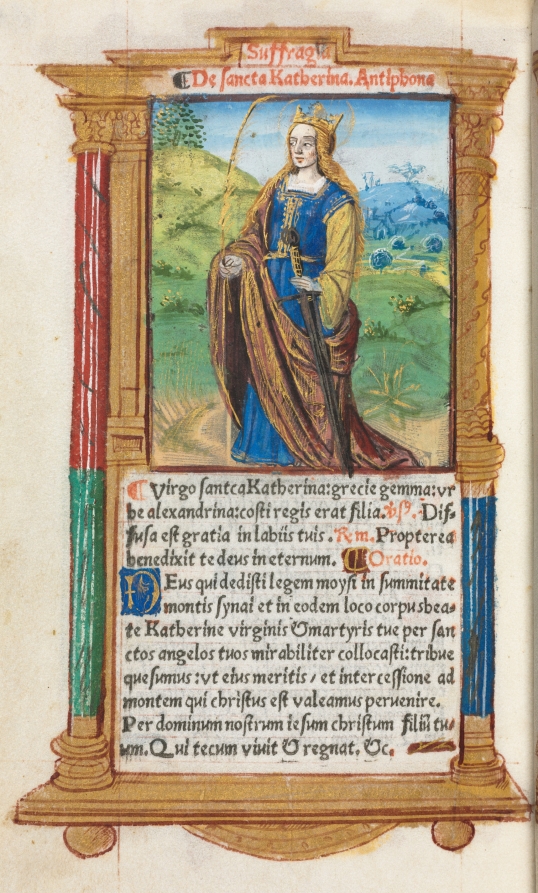 Suffragia
De sancta Katherina. Antiphona
Virgo santca Katherina: grecie gemma: vr
be alexandrina: costi regis erat filia. ꝟſ. Dif-
fusa est gratia in labiis tuis. Rm. Propterea
benedixit te deus in eternum. Oratio.
DEus qui dedisti legem moysi in summitate
montis synai et in eodem loco corpus bea-
te Katherine virginis & martyris tue per san
ctos angelos tuos mirabiliter collocasti: tribue
quesumus: vt eius meritis / et intercessione ad
montem qui christus est valeamus peruenire.
Per dominum nostrum iesum christum filiū tu-
um. Qui tecum viuit & regnat. &c.